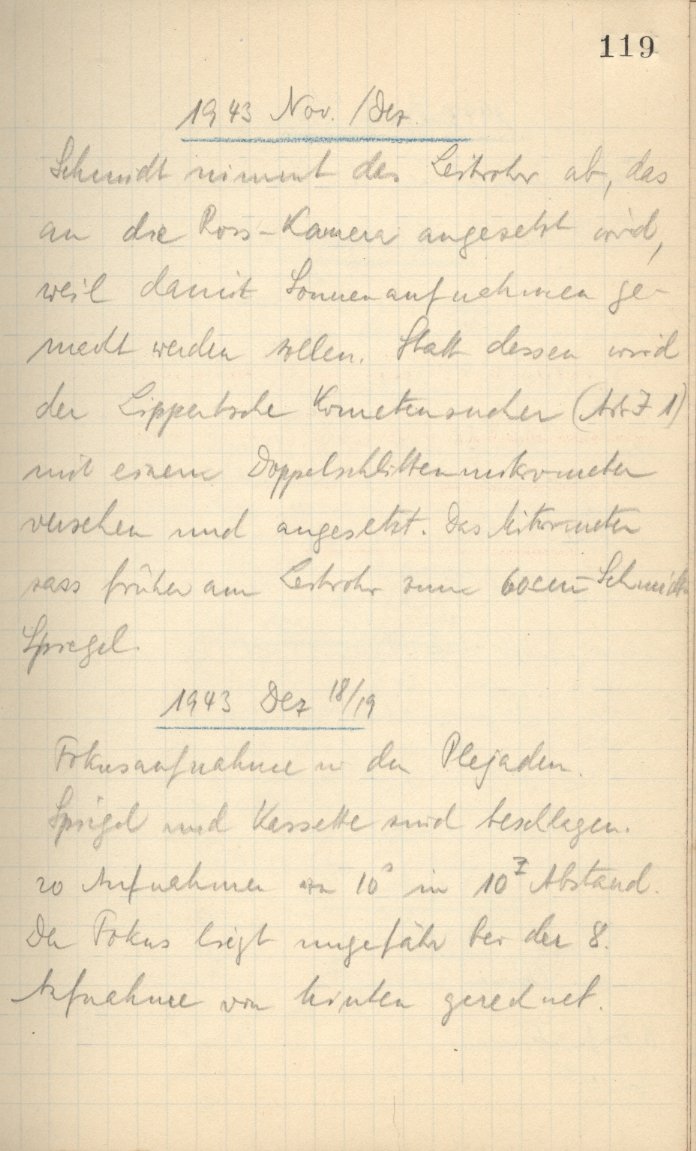 119
1943 Nov./Dez.
Schmidt nimmt das Leitrohr ab, das
an die Ross-Kamera angesetzt wird,
weil damit Sonnenaufnahmen ge-
macht werden sollen. Statt dessen wird
der Lippertsche Kometensucher
mit einem Doppelschlittenmikrometer
versehen und angesetzt. Das Mikrometer
sass früher am Leitrohr zum 60cm-Schmidt
Spiegel.
1943 Dez 18/19
Fokusaufnahme in den Plejaden.
Spiegel und Kassette sind beschlagen.
20 Aufnahmen von 10s in 10z Abstand.
Der Fokus liegt ungefähr bei der 8.
Aufnahme von hinten gerechnet.